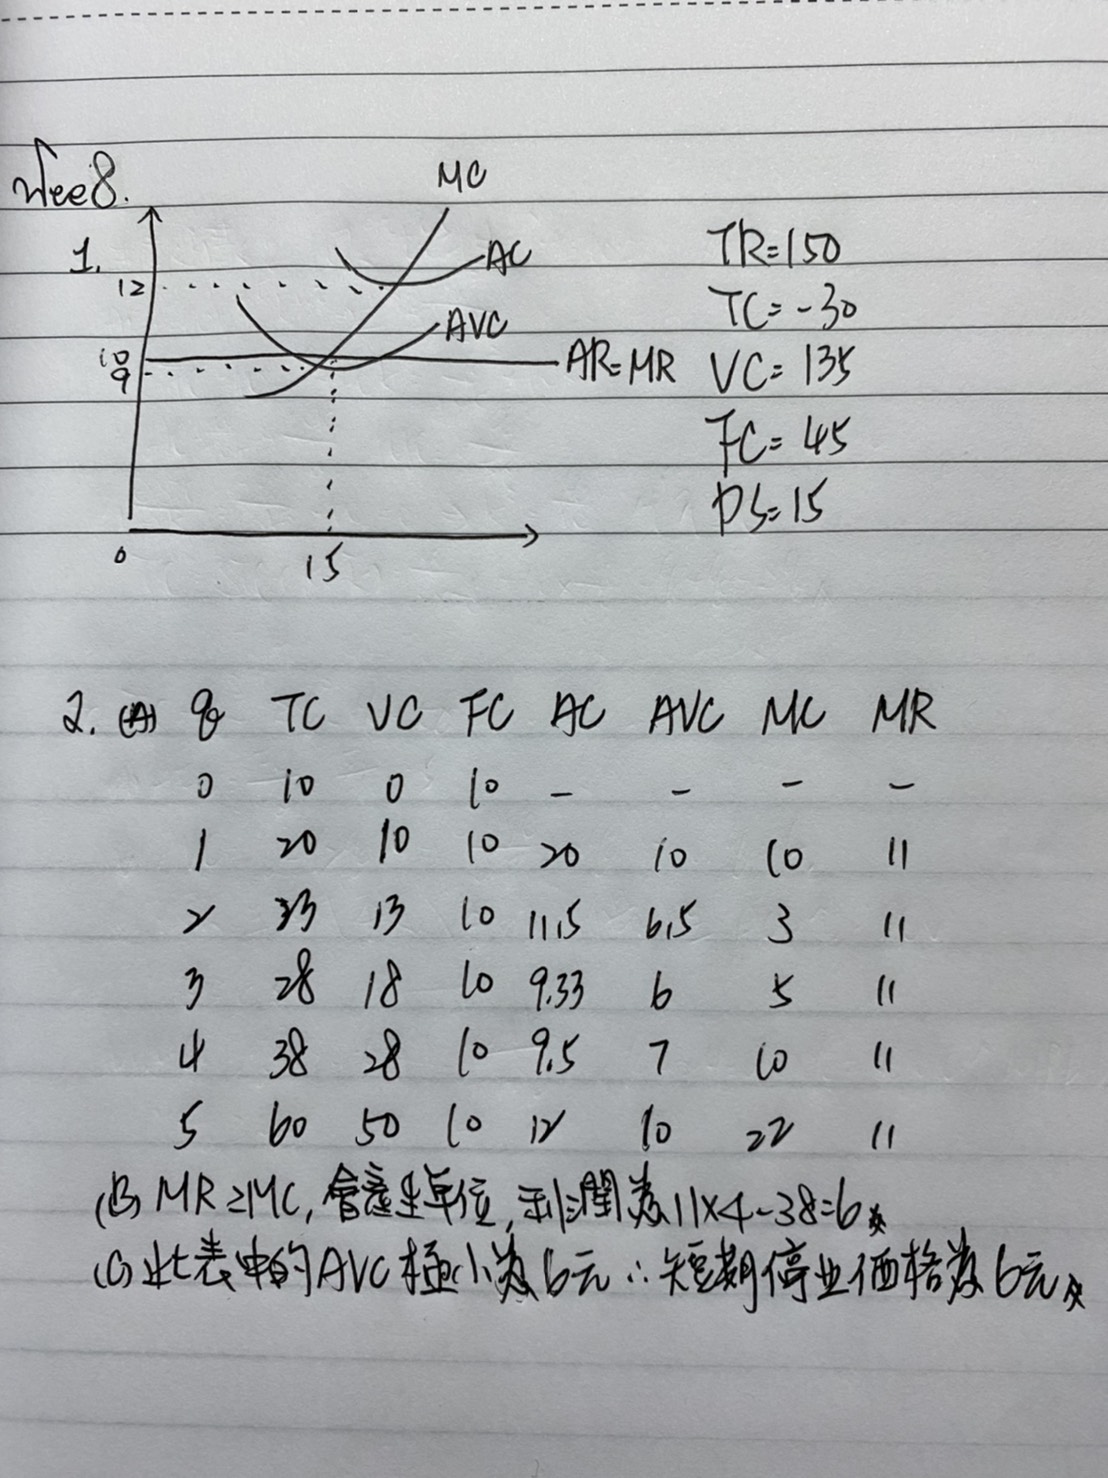 Wee8.
1.
MC
AC
12
AVC
10
9
AR=MR
0
15
TR=150
TC=-30
VC=135
FC=45
PS=15
2. (A) q TC VC FC AC AVC MC MR
0 10 0 10 - - - -
1 20 10 10 20 10 10 11
2 23 13 10 11.5 6.5 3 11
3 28 18 10 9.33 6 5 11
4 38 28 10 9.5 7 10 11
5 60 50 10 12 10 22 11
(B) MR≥MC, 會產生單位, 利潤為11×4-38=6
(C) 此表中的AVC極小為6元∴短期停业価格為6元